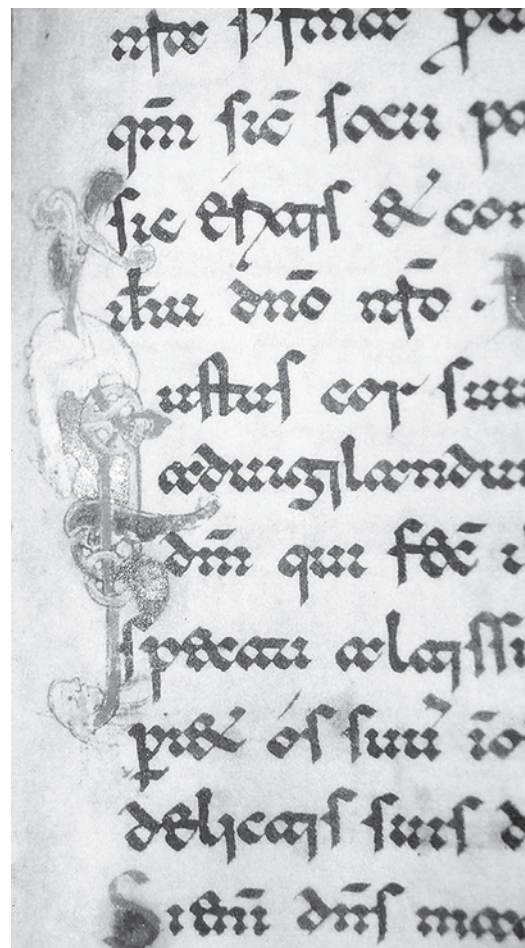 nr̄a firma p
qm̄ sic̄ socii pa
sic eritis & con
ih̄u dn̄o nr̄o ·
Iustus cor suu
aduigilandu
dm̄ qui fec̄ i
spectu altissi
piet os suū īo
delictis suis d
Si enī dn̄s ma